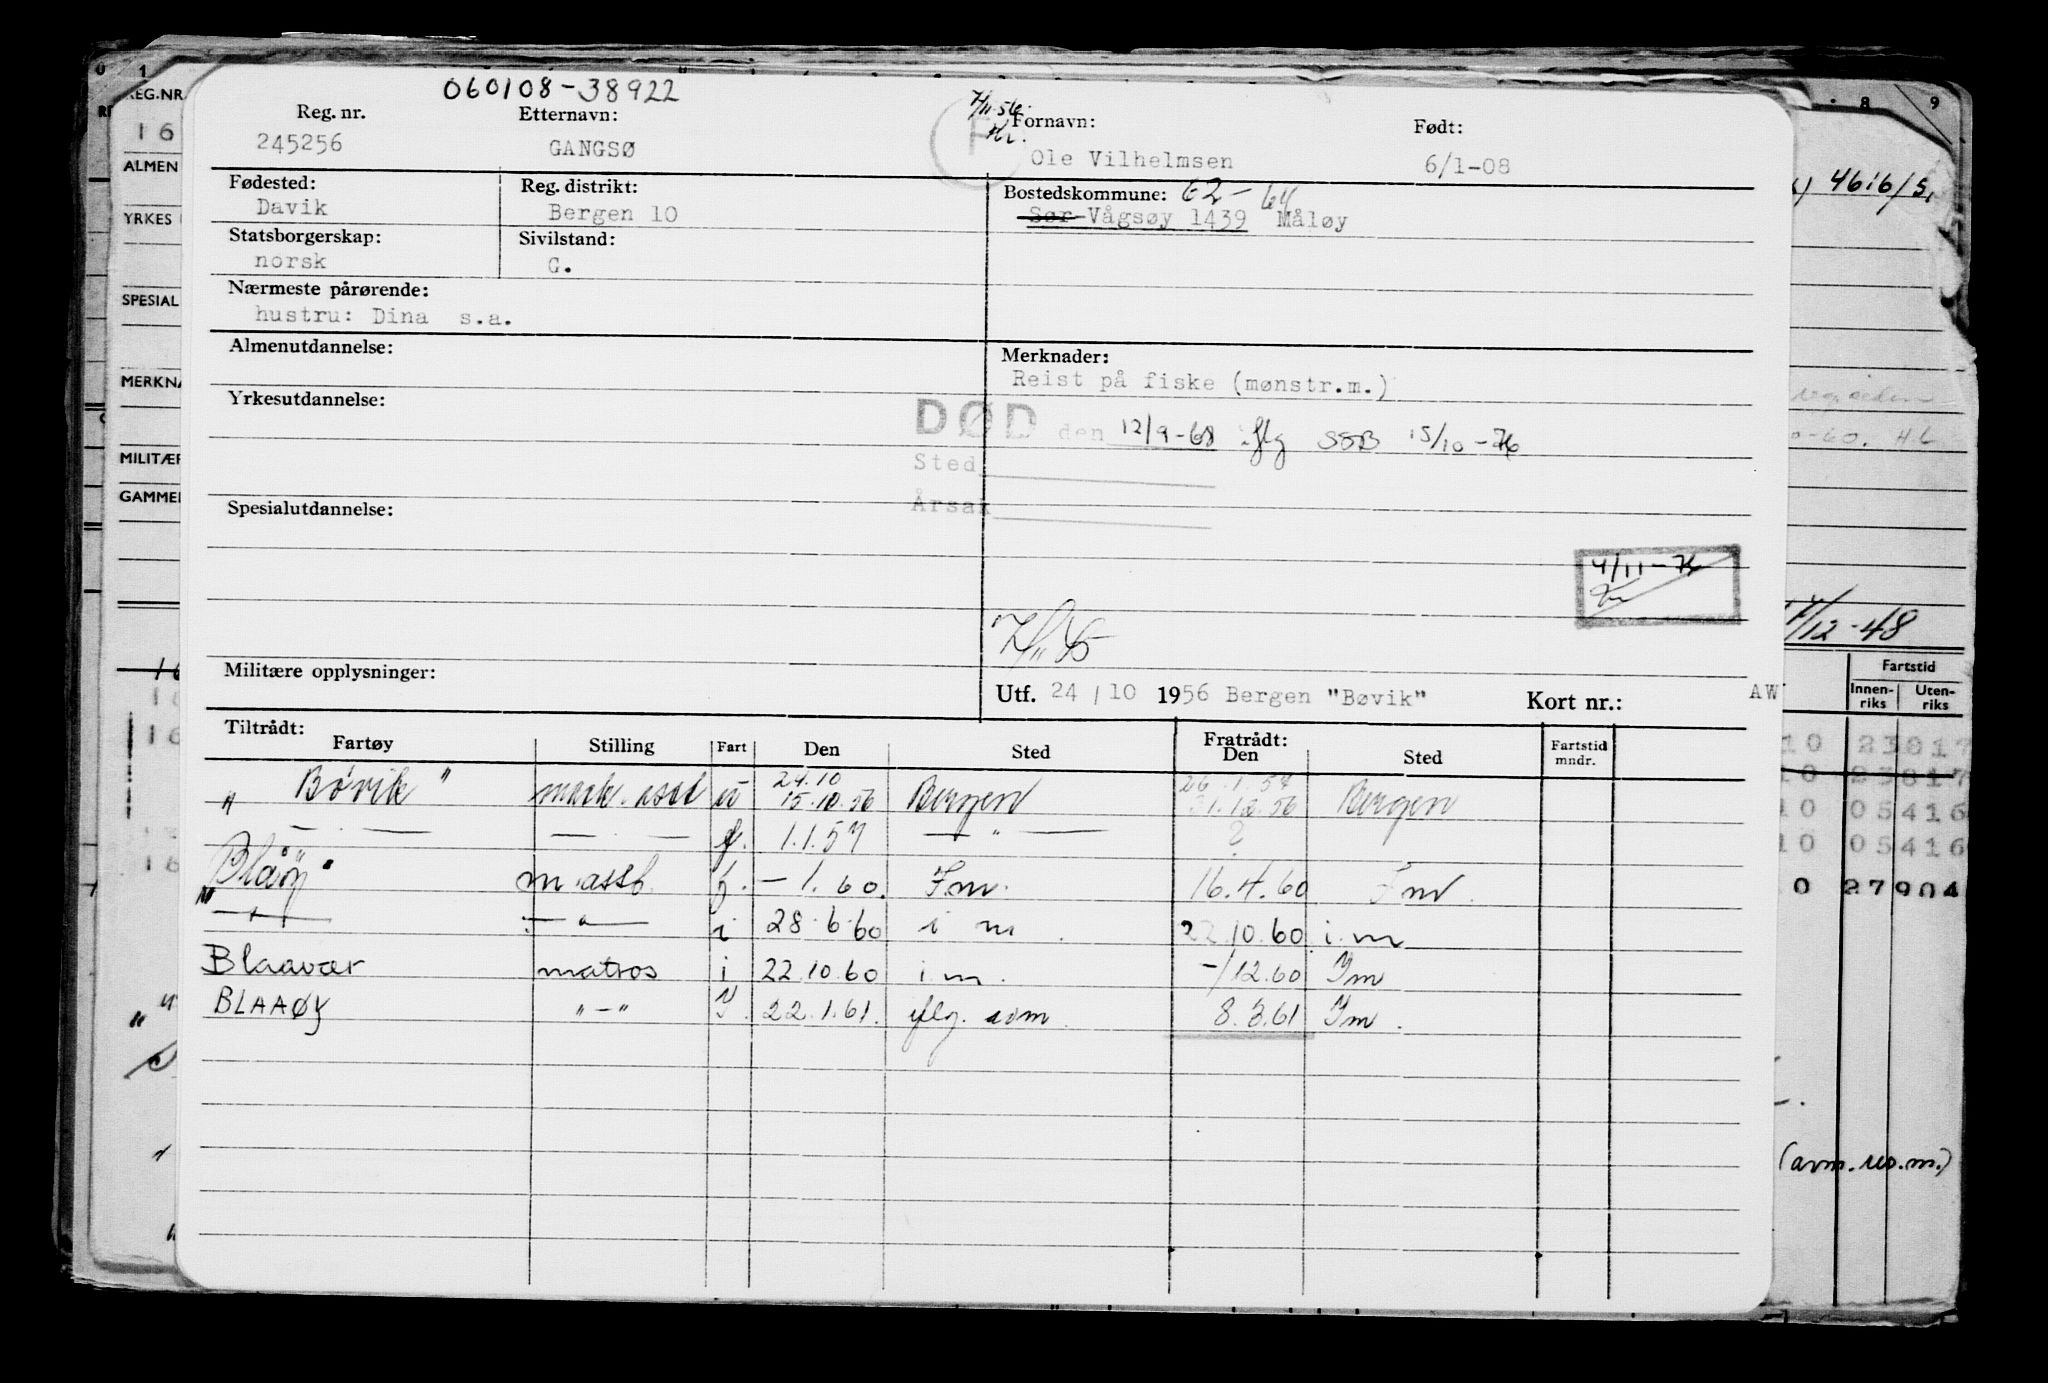 060108-38922
Reg. nr. Etternavn: Fornavn: Født:
245256 GANGSØ Ole Vilhelmsen 6/1-08
Fødested: Reg. distrikt: Bostedskommune: 62-64
Davik Bergen 10 Sør-Vågsøy 1439 Måløy
Statsborgerskap: Sivilstand:
norsk G.
Nærmeste pårørende:
hustru: Dina s.a.
Almenutdannelse: Merknader:
Reist på fiske (mønstr.m.)
Yrkesutdannelse:
DØD den 12/9-68 iflg SSB 15/10-76
Sted
Årsak
Spesialutdannelse:
4/11-76
Militære opplysninger:
Utf. 24/10 1956 Bergen "Bøvik" Kort nr.: AW
Tiltrådt: Fratrådt:
Fartøy Stilling Fart Den Sted Den Sted Fartstid mndr.
24.10 26.1.57
"Bøvik" mask. asst u 15.10.56 Bergen 31.12.56 Bergen
— " — — . — f. 1.1.57 — " — ?
"Blåøy" m. asst. f. - 1.60. Fm. 16.4.60 Fm.
— " — — " — i 28.6.60 i m 22.10.60 i.m
Blaavær matros i 22.10.60 i.m. -/12.60 Im
BLAAØY " — " I. 22.1.61. iflg. avm. 8.3.61 Im.
REG.NR.
16
ALMEN
YRKES
SPESIAL
MERKNA
MILITÆR
GAMMEL
8 9
4616/5
0-60. H.L.
/12-48
Fartstid
Innen-riks Uten-riks
10 23817
10 23817
10 05416
10 05416
0 27904
(avm. uo. m.)